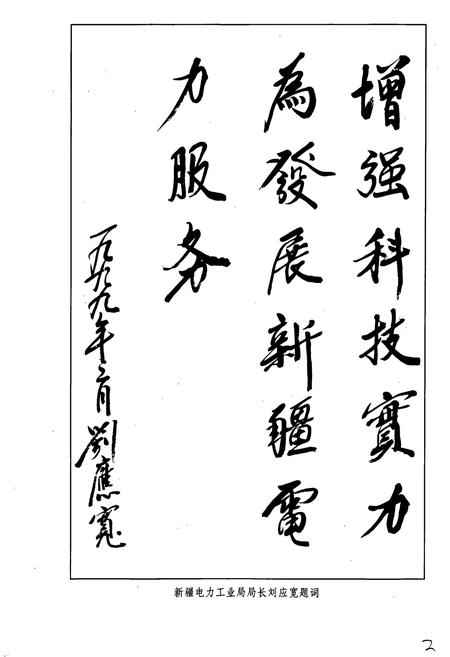 增强科技實力
為發展新疆電
力服务
一九九九年二月劉應寬
新疆电力工业局局长刘应宽题词
2